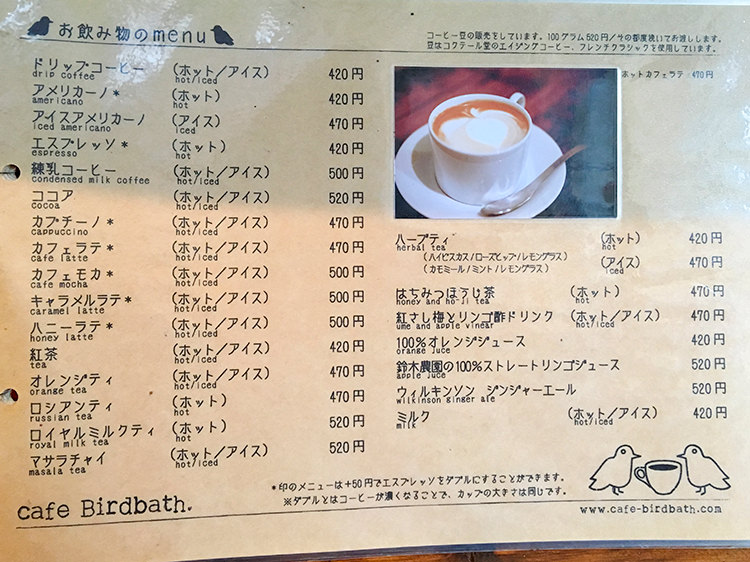 お飲み物のmenu
コーヒー豆の販売をしています。100グラム520円/その都度挽いてお渡しします。
豆はコクテール堂のエイジングコーヒー、フレンチクラシックを使用しています。
ドリップコーヒー (ホット/アイス) 420円
drip coffee hot/iced
アメリカーノ* (ホット) 420円
americano hot
アイスアメリカーノ (アイス) 470円
iced americano iced
エスプレッソ* (ホット) 420円
espresso hot
練乳コーヒー (ホット/アイス) 500円
condensed milk coffee hot/iced
ココア (ホット/アイス) 520円
cocoa hot/iced
カプチーノ* (ホット/アイス) 470円
cappuccino hot/iced
カフェラテ* (ホット/アイス) 470円
cafe latte hot/iced
カフェモカ* (ホット/アイス) 500円
cafe mocha hot/iced
キャラメルラテ* (ホット/アイス) 500円
caramel latte hot/iced
ハニーラテ* (ホット/アイス) 500円
honey latte hot/iced
紅茶 (ホット/アイス) 420円
tea hot/iced
オレンジティ (ホット/アイス) 470円
orange tea hot/iced
ロシアンティ (ホット) 470円
russian tea hot
ロイヤルミルクティ (ホット) 520円
royal milk tea hot
マサラチャイ (ホット/アイス) 520円
masala tea hot/iced
ホットカフェラテ 470円
ハーブティ (ホット) 420円
herbal tea hot
(ハイビスカス/ローズヒップ/レモングラス) (アイス) 470円
(カモミール/ミント/レモングラス) iced
はちみつほうじ茶 (ホット) 470円
honey and ho-ji tea hot
紅さし梅とリンゴ酢ドリンク (ホット/アイス) 470円
ume and apple vinear hot/iced
100%オレンジジュース 420円
orange juce
鈴木農園の100%ストレートリンゴジュース 520円
apple juce
ウィルキンソン ジンジャーエール 520円
wilkinson ginger ale
ミルク (ホット/アイス) 420円
milk hot/iced
*印のメニューは+50円でエスプレッソをダブルにすることができます。
※ダブルとはコーヒーが濃くなることで、カップの大きさは同じです。
cafe Birdbath.
www.cafe-birdbath.com